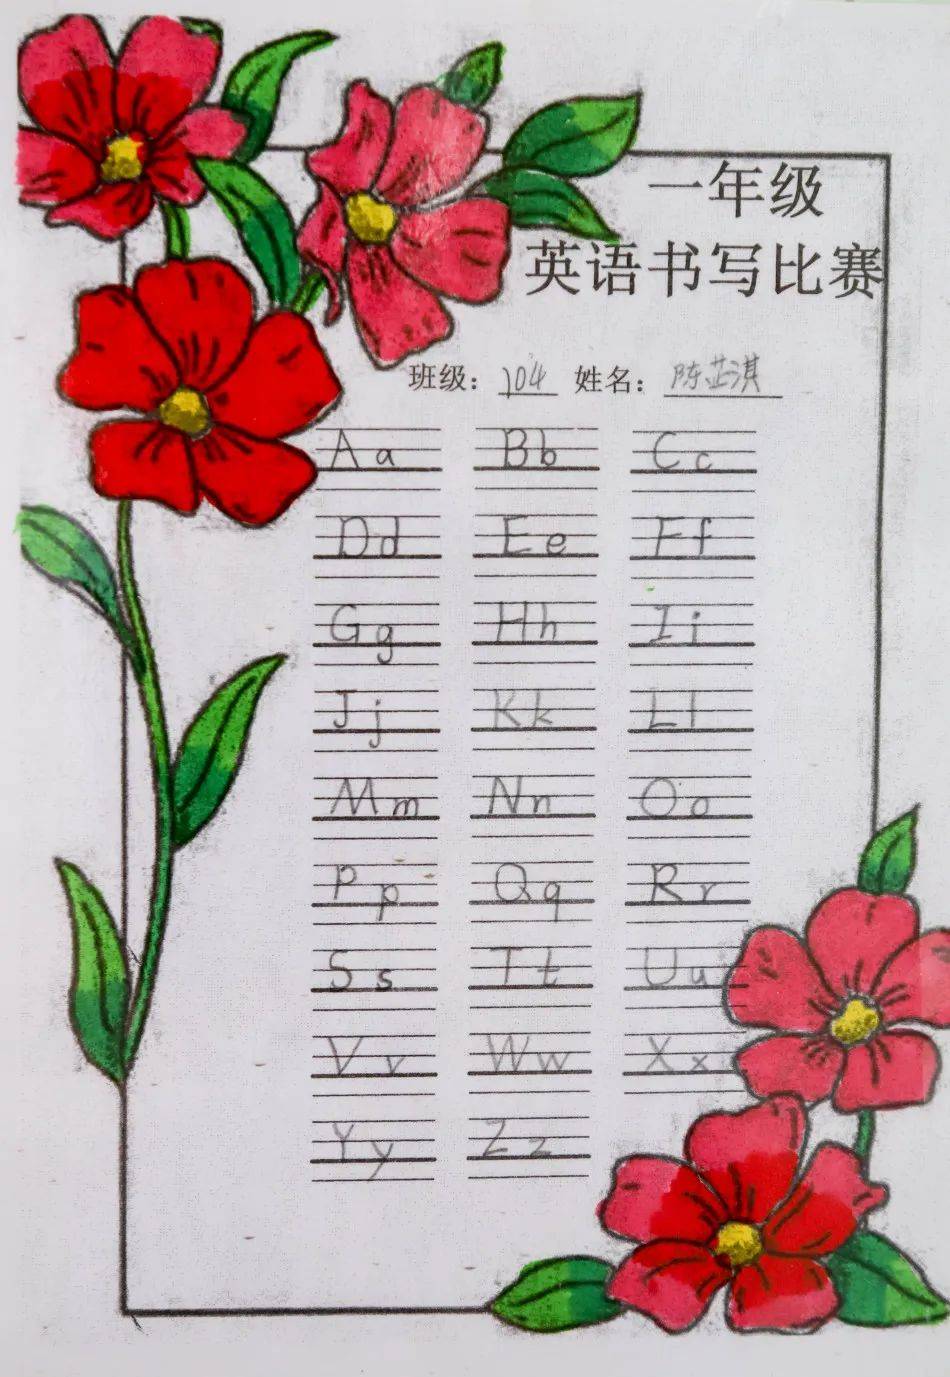 一年级
英语书写比赛
班级：104 姓名：陈芷淇
Aa Bb Cc
Dd Ee Ff
Gg Hh Ii
Jj Kk Ll
Mm Nn Oo
Pp Qq Rr
Ss Tt Uu
Vv Ww Xx
Yy Zz